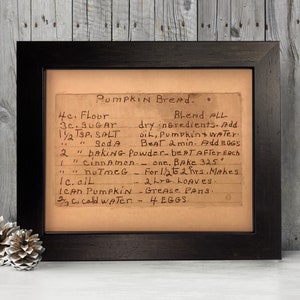 Pumpkin Bread.
4 c. Flour Blend ALL
3 c. SUGAR dry ingredients. Add
1 1/2 Tsp. SALT oil, Pumpkin & water
" " SODA Beat 2 min. Add EGGS
2 " baking Powder - beat after each
1 " cinnamon - one. Bake 325°
" " nutmeg - For 1 1/2 to 2 hrs. Makes
1 c. oil - 2 Lrg Loaves.
1 can Pumpkin - Grease Pans.
2/3 c. cold water - 4 EGGS